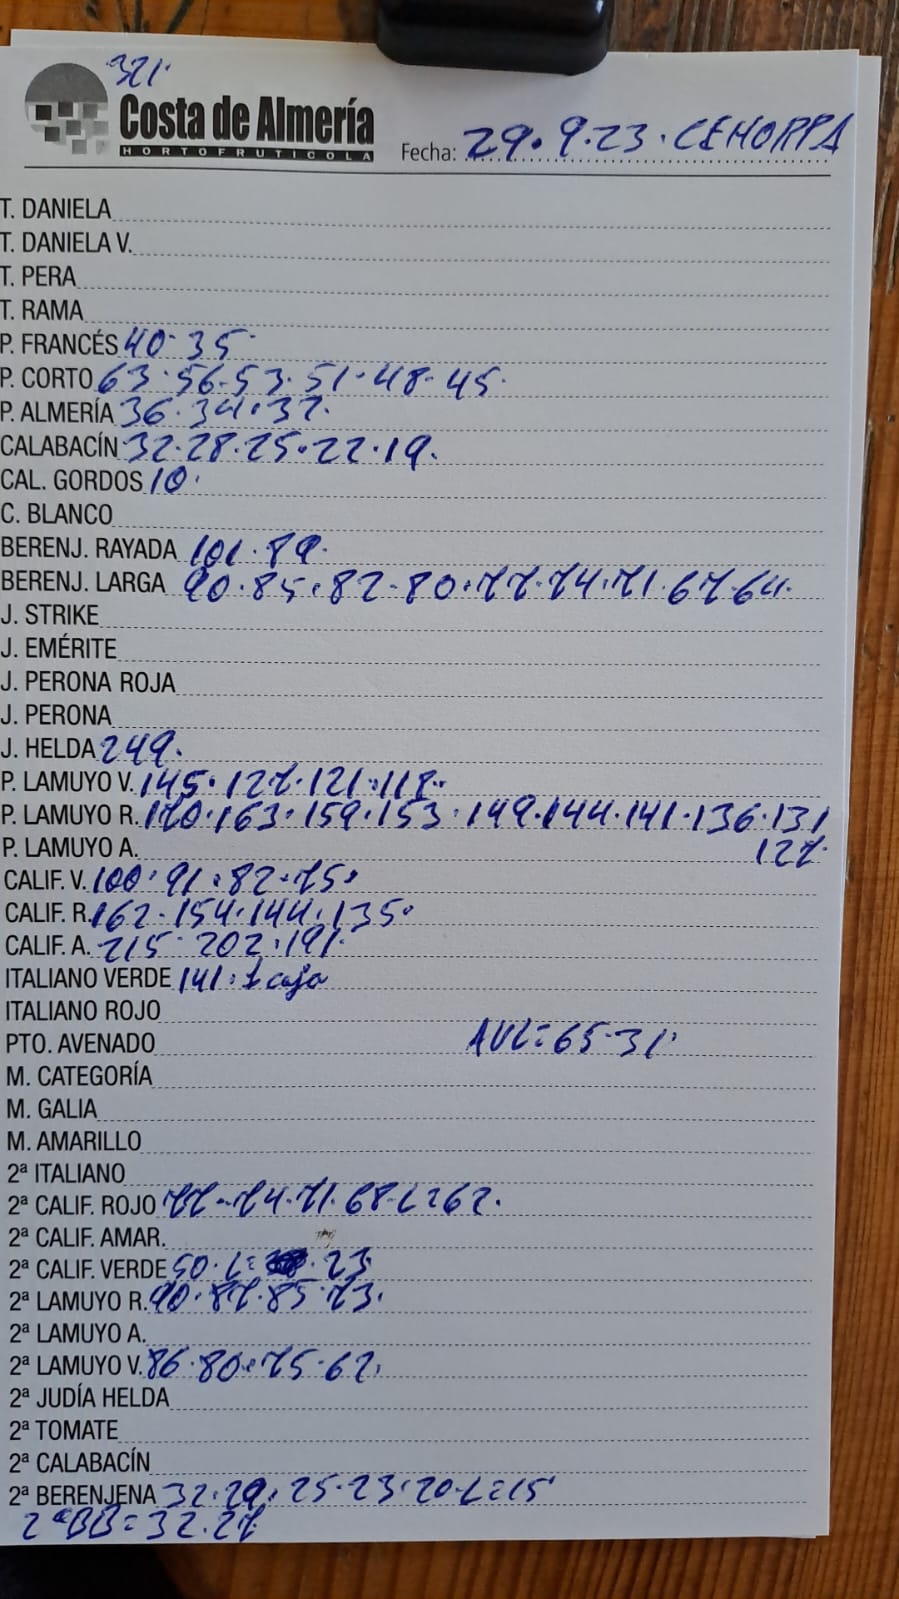 321.
Costa de Almería
HORTOFRUTICOLA
Fecha: 29.9.23. CEHORPA
T. DANIELA
T. DANIELA V.
T. PERA
T. RAMA
P. FRANCÉS 40.35.
P. CORTO 63.56.53.51.48.45.
P. ALMERÍA 36.34.32.
CALABACÍN 32.28.25.22.19.
CAL. GORDOS 10.
C. BLANCO
BERENJ. RAYADA 101.89.
BERENJ. LARGA 90.85.82.80.77.74.71.67.64.
J. STRIKE
J. EMÉRITE
J. PERONA ROJA
J. PERONA
J. HELDA 249.
P. LAMUYO V. 145.127.121.118.
P. LAMUYO R. 170.163.159.153.149.144.141.136.131
P. LAMUYO A. 127.
CALIF. V. 100.91.82.75.
CALIF. R. 162.154.144.135.
CALIF. A. 215.202.191.
ITALIANO VERDE 141.1 caja
ITALIANO ROJO
PTO. AVENADO AVL=65.31.
M. CATEGORÍA
M. GALIA
M. AMARILLO
2ª ITALIANO
2ª CALIF. ROJO 77.74.71.68.L=62.
2ª CALIF. AMAR.
2ª CALIF. VERDE 50.L=.23
2ª LAMUYO R. 90.87.85.73.
2ª LAMUYO A.
2ª LAMUYO V. 86.80.75.62.
2ª JUDÍA HELDA
2ª TOMATE
2ª CALABACÍN
2ª BERENJENA 32.29.25.23.20.L=15
2ªBB=32.27